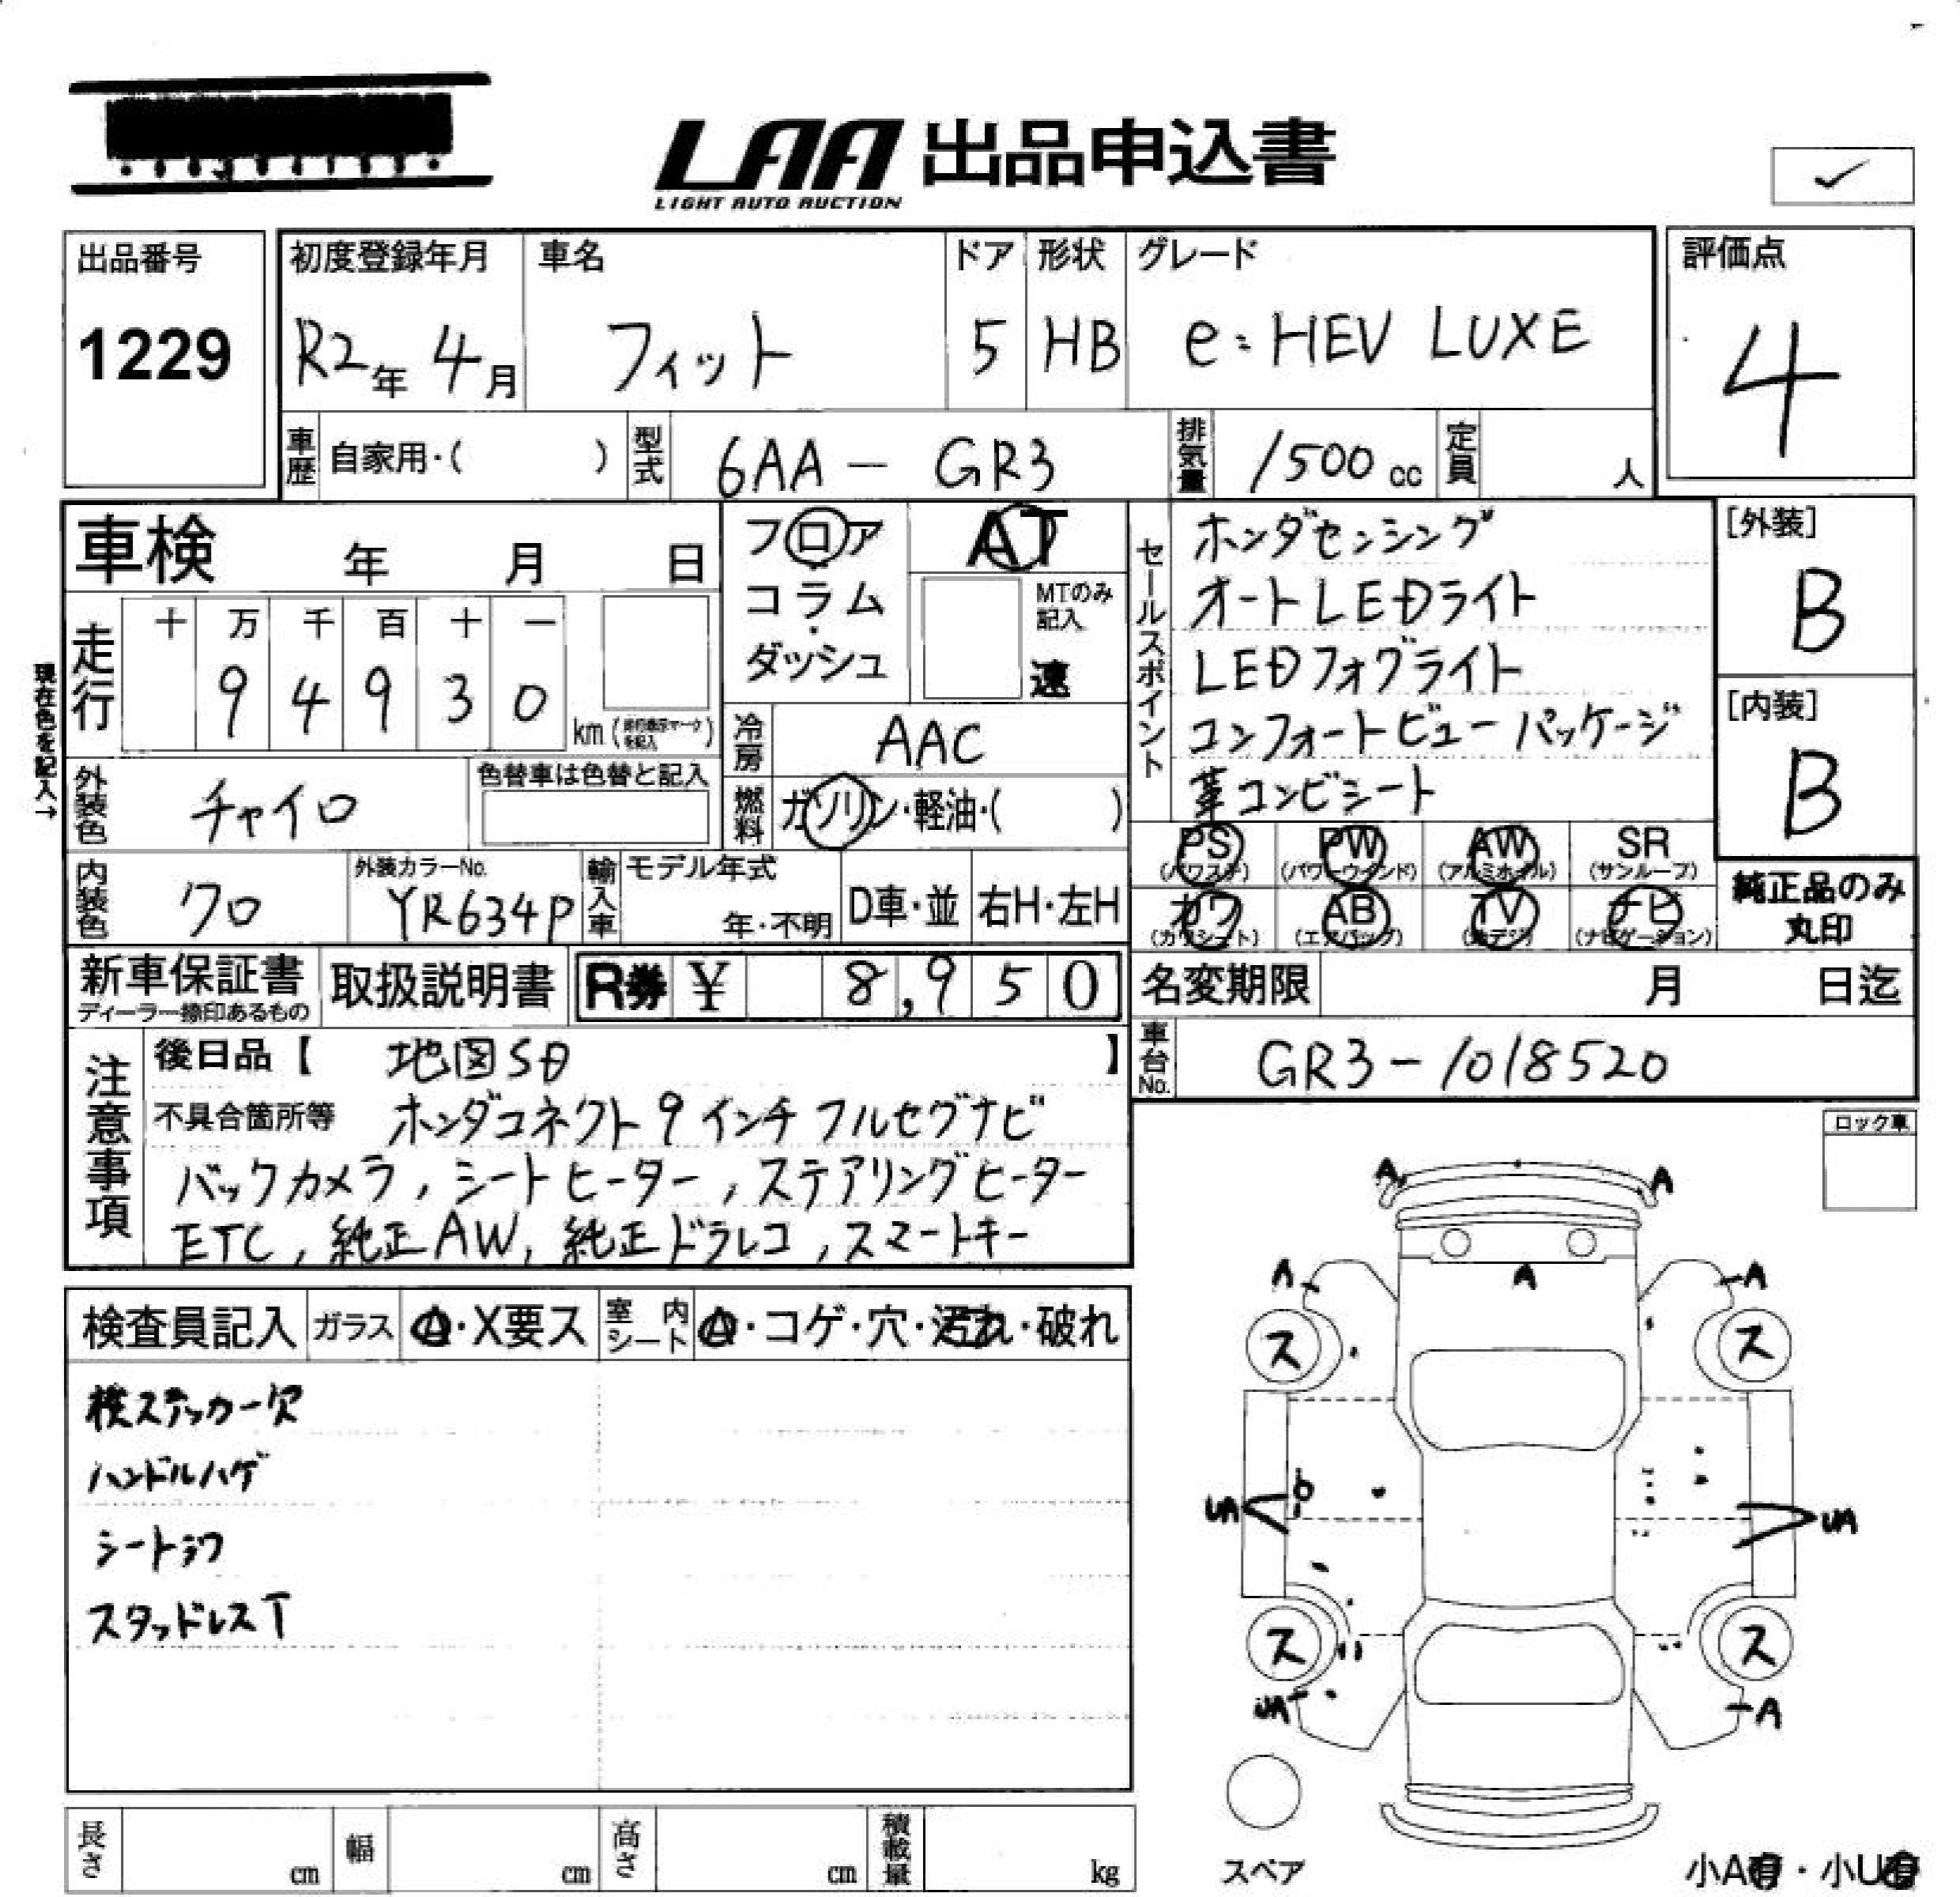 LAA 出品申込書
LIGHT AUTO AUCTION
出品番号
1229
初度登録年月
R2年 4月
車名
フィット
ドア
5
形状
HB
グレード
e:HEV LUXE
評価点
4
車歴 自家用・( )
型式 6AA - GR3
排気量 1500 cc
定員 人
車検 年 月 日
フロア
コラム
・
ダッシュ
AT
MTのみ
記入
速
セールスポイント
ホンダセンシング
オートLEDライト
LEDフォグライト
コンフォートビューパッケージ
革コンビシート
[外装]
B
[内装]
B
現在色を記入→
走行
十 万 千 百 十 一
9 4 9 3 0
km
冷房 AAC
外装色 チャイロ
色替車は色替と記入
燃料 ガソリン・軽油・( )
内装色 クロ
外装カラーNo.
YR634P
輸入車
モデル年式
年・不明
D車・並
右H・左H
PS (パワステ)
PW (パワーウインド)
AW (アルミホイル)
SR (サンルーフ)
カワ (カワシート)
AB (エアバッグ)
TV (地デジ)
ナビ (ナビゲーション)
純正品のみ
丸印
新車保証書
ディーラー捺印あるもの
取扱説明書
R券 ¥ 8,950
名変期限 月 日迄
車台No. GR3-1018520
注意事項
後日品【 地図SD 】
不具合箇所等 ホンダコネクト9インチフルセグナビ
バックカメラ, シートヒーター, ステアリングヒーター
ETC, 純正AW, 純正ドラレコ, スマートキー
ロック車
検査員記入
ガラス A・X要ス
室内シート A・コゲ・穴・汚れ・破れ
横ステッカー欠
ハンドルハゲ
シートシワ
スタッドレスT
A A
A A A
ス ス
UA UA
ス ス
UA A
スペア
小A有・小U有
長さ cm
幅 cm
高さ cm
積載量 kg